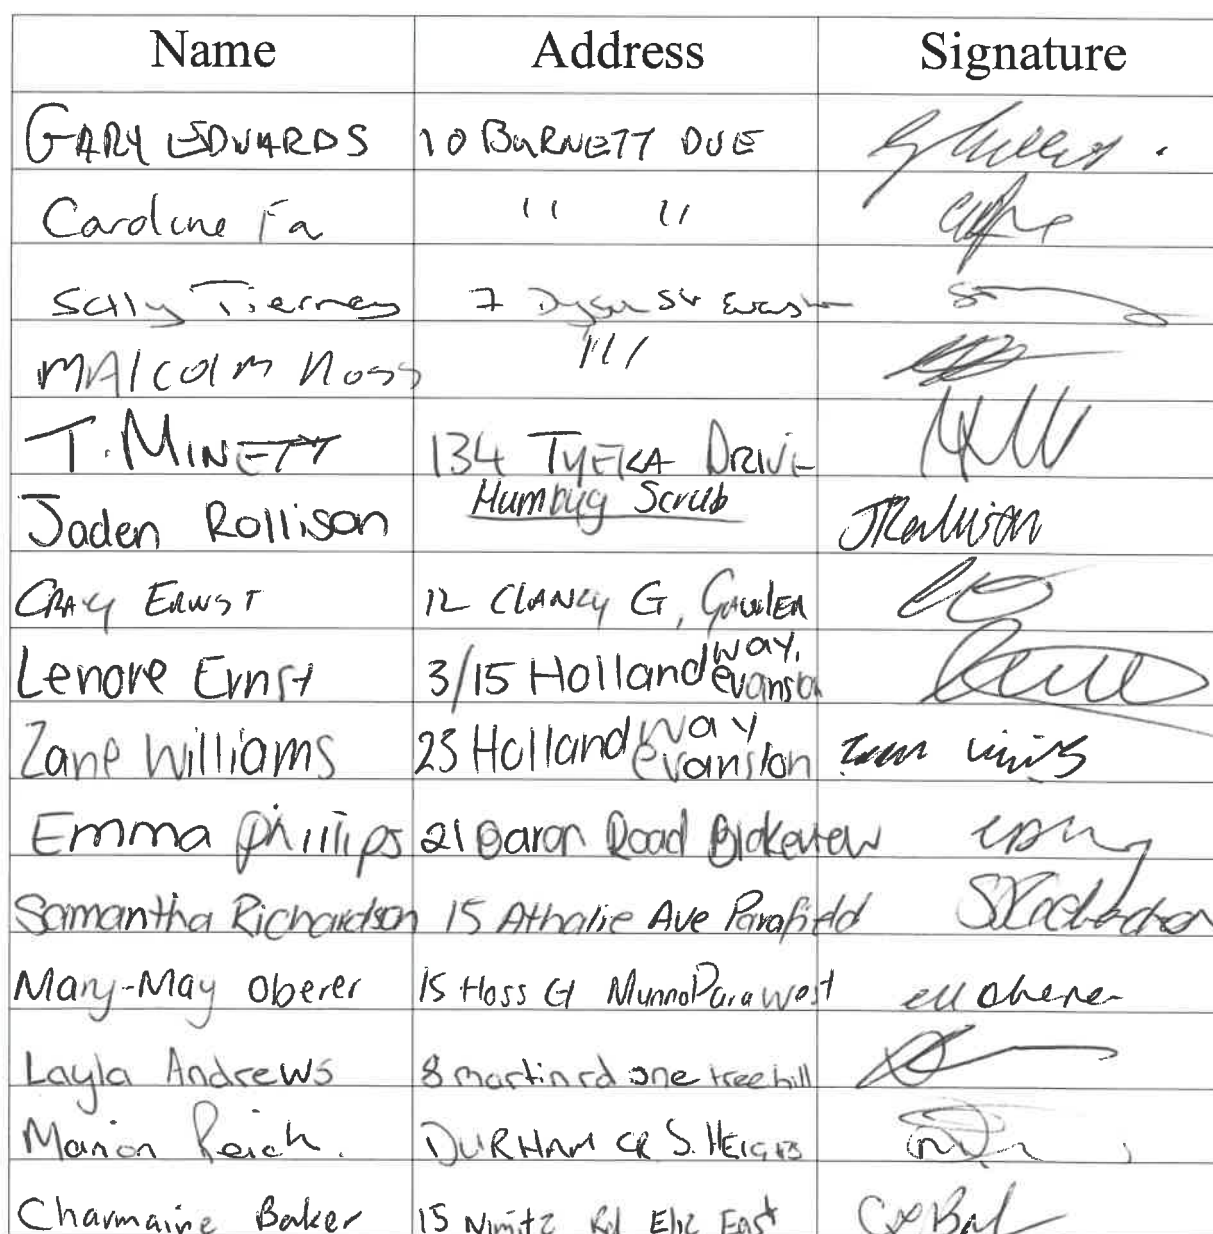 Name Address Signature
GARY EDWARDS 10 BURNETT DVE
Caroline Fa " "
Sally Tierney 7 St
MALCOLM ROSS "'
T. MINETT 134 DRIVE
Jaden Rollison Humbug Scrub JRollison
CRAIG ERNST 12 CLANCY G, GAWLER
Lenore Ernst 3/15 Holland way, evanston
Zane Williams 23 Holland way evanston
Emma Phillips 21 Baron Road Blakeview
Samantha Richardson 15 Athalie Ave Parafield SRichardson
Mary-May Oberer 15 Hoss Ct Munno Para West Oberer
Layla Andrews 8 martin rd one tree hill
Marion Reich. DURHAM CR S. HEIGHTS
Charmaine Baker 15 Nimitz Rd Eliz East